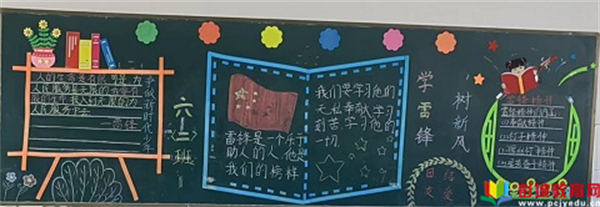 人的生命是有限的,可是,为
人民服务是无限的,我要把有
限的生命,投入到无限的为
人民服务中去
——雷锋
做新时代少年
六(二)班
雷锋是一个乐于
助人的人,他是
我们的榜样
我们要学习他的
无私奉献,学习
刻苦,学习他的
一切.
学雷锋
树新风
雷锋精神
雷锋精神的内涵
(1)奉献精神
(2)钉子精神
(4)艰苦奋斗精神
www.pcjyedu.cn